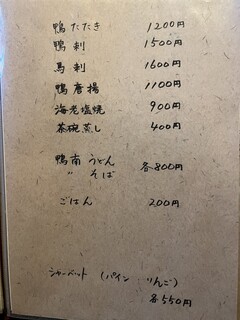 鴨たたき 1200円
鴨刺 1500円
馬刺 1600円
鴨唐揚 1100円
海老塩焼 900円
茶碗蒸し 400円
鴨南うどん 各800円
〃 そば
ごはん 200円
シャーベット (パイン りんご)
各550円